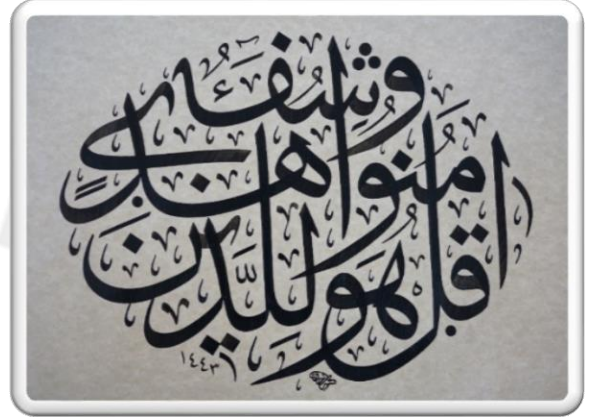 قل هو للذين آمنوا هدى وشفاء
١٤٤٣